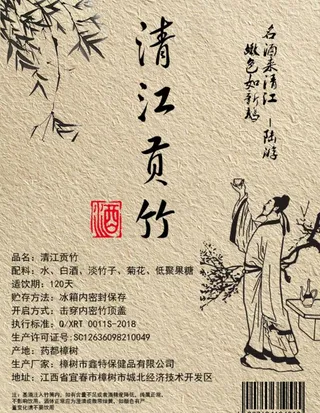 清江贡竹
酒
名酒来清江
嫩色如新鹅
—陆游
品名：清江贡竹
配料：水、白酒、淡竹子、菊花、低聚果糖
适饮期：120天
贮存方法：冰箱内密封保存
开启方式：击穿内密竹顶盖
执行标准：Q/XRT 0011S-2018
生产许可证号:SC12636098210049
产地：药都樟树
生产厂家：樟树市鑫特保健品有限公司
地址：江西省宜春市樟树市城北经济技术开发区